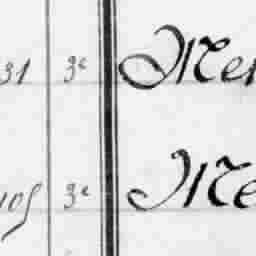 31 3e Mer
105 3e Me